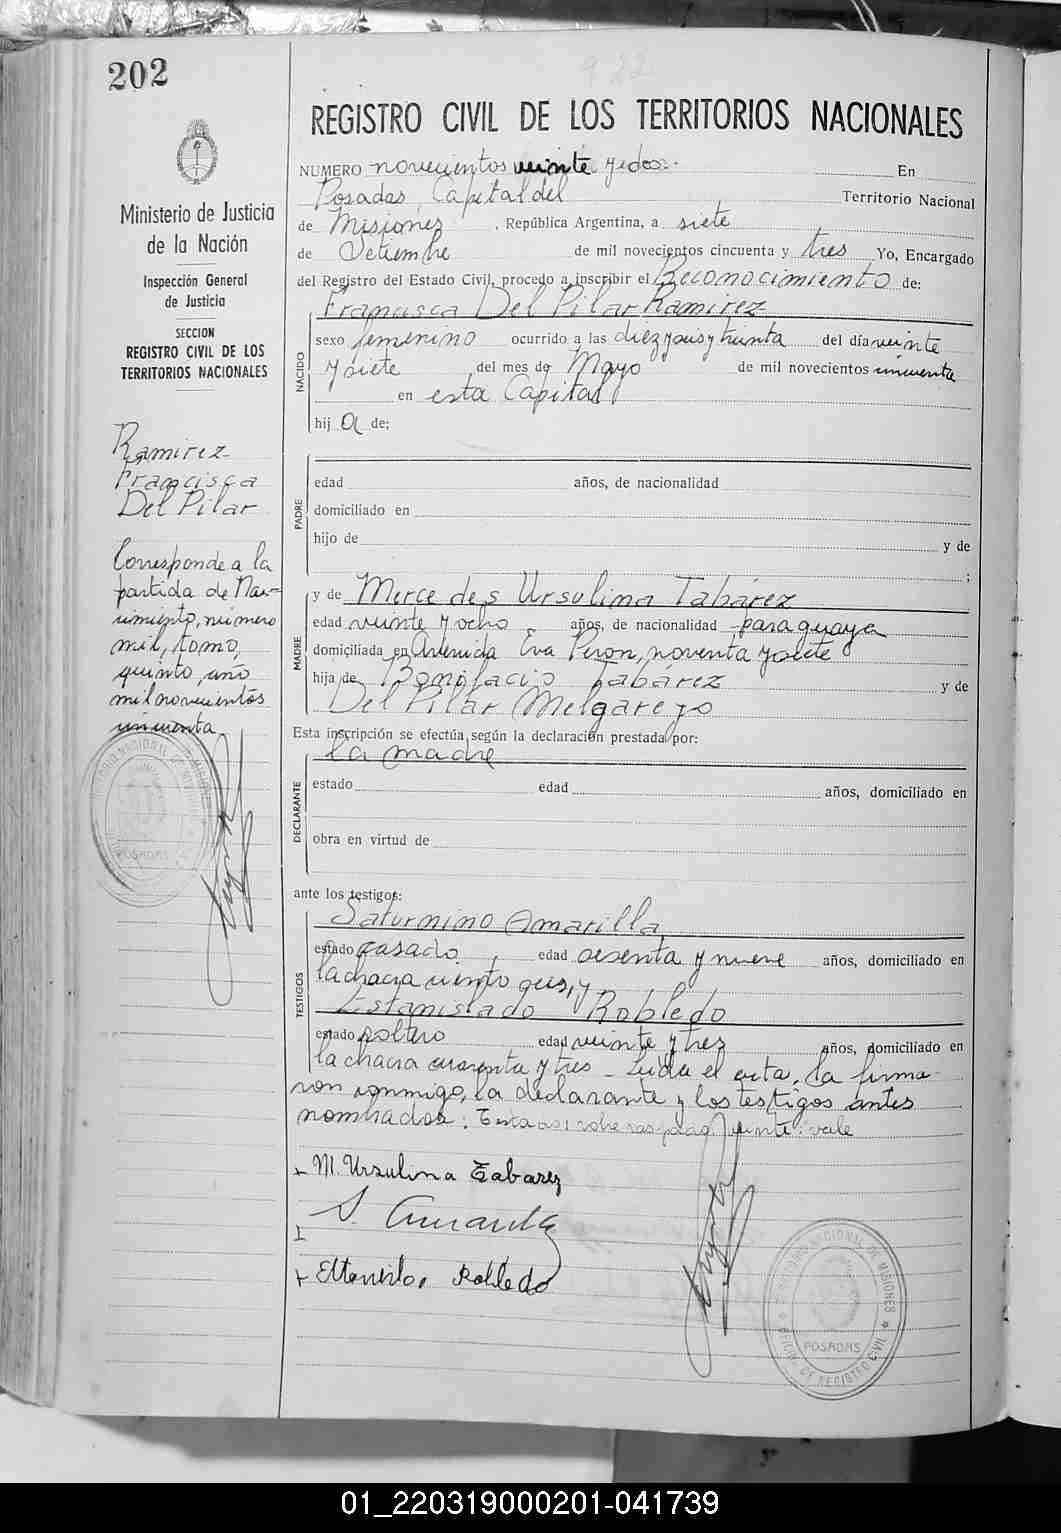 922
202
REGISTRO CIVIL DE LOS TERRITORIOS NACIONALES
NUMERO novecientos veinte y dos.- En
Posadas, Capital del Territorio Nacional
de Misiones, República Argentina, a siete
de Setiembre de mil novecientos cincuenta y tres Yo, Encargado
del Registro del Estado Civil, procedo a inscribir el Reconocimiento de:
Francisca Del Pilar Ramirez
NACIDO
sexo femenino ocurrido a las diez y seis y treinta del día veinte
y siete del mes de Mayo de mil novecientos cincuenta
en esta Capital
hij a de:
PADRE
edad años, de nacionalidad
domiciliado en
hijo de y de
;
MADRE
y de Mercedes Ursulina Tabárez
edad veinte y ocho años, de nacionalidad paraguaya
domiciliada en Avenida Eva Peron, noventa y siete
hija de Bonifacio Tabárez y de
Del Pilar Melgarejo
Esta inscripción se efectúa según la declaración prestada por:
la madre
DECLARANTE
estado edad años, domiciliado en
obra en virtud de
ante los testigos:
TESTIGOS
Saturnino Amarilla,
estado casado, edad sesenta y nueve años, domiciliado en
la chacra ciento seis, y
Estanislado Robledo
estado soltero edad veinte y tres años, domiciliado en
la chacra cuarenta y tres - Leida el acta, la firma-
ron conmigo, la declarante y los testigos antes
nombrados: veinte: vale
M. Ursulina Tabarez
S. Amarilla
Robledo
TERRITORIO NACIONAL DE MISIONES
POSADAS
OFICINA DE REGISTRO CIVIL
Ministerio de Justicia
de la Nación
Inspección General
de Justicia
SECCION
REGISTRO CIVIL DE LOS
TERRITORIOS NACIONALES
Ramirez
Francisca
Del Pilar
Corresponde a la
partida de Naci-
miento, número
mil, tomo,
quinto, año
mil novecientos
cincuenta
POSADAS
01_220319000201-041739